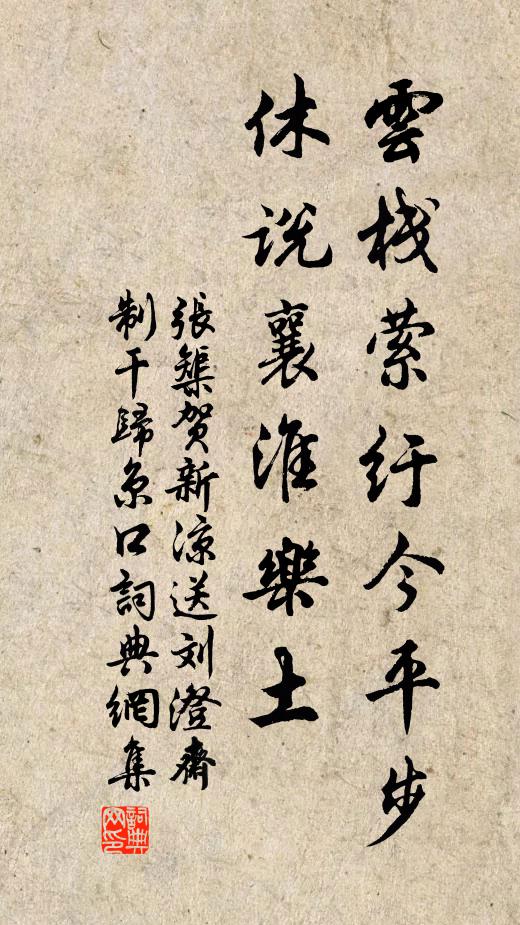 雲栈萦纡今平步
休说襄淮樂土
張榘贺新涼送刘澄齋
制干歸京口詞典網集
詞典网印